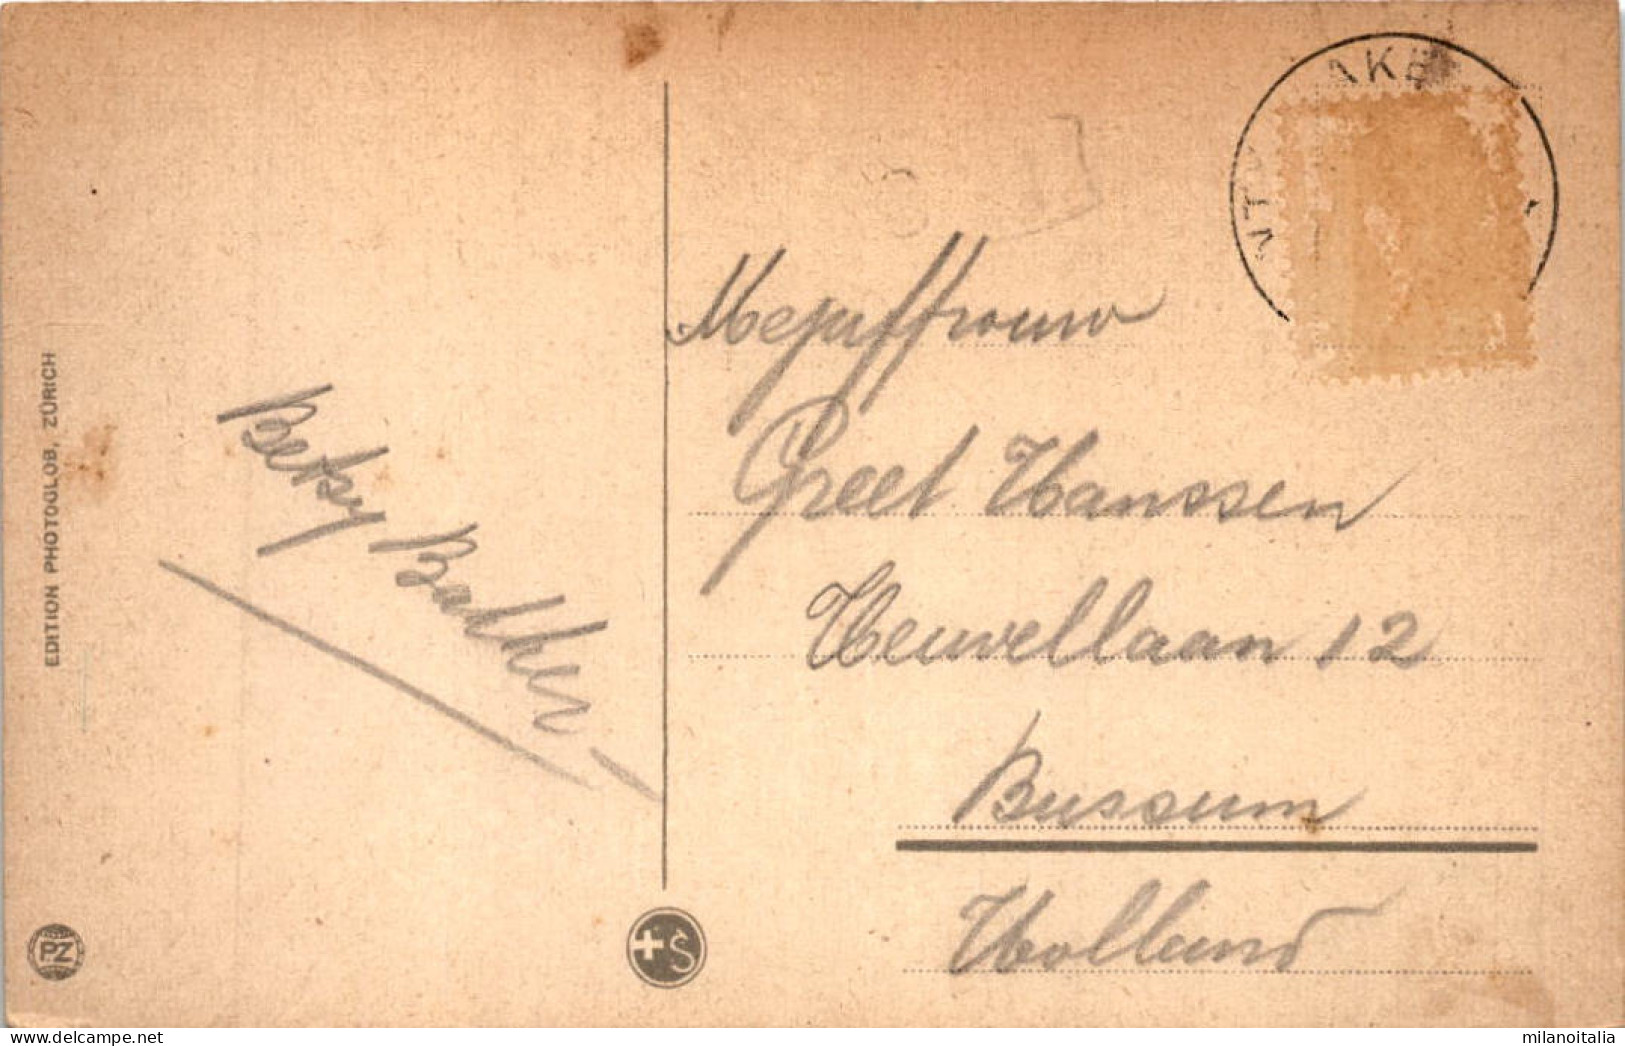 EDITION PHOTOGLOB, ZÜRICH
PZ
Betsy Bakker
+S
AKE
NT
Mejuffrouw
Greet Hanssen
Heuvellaan 12
Bussum
Holland
milanoitalia